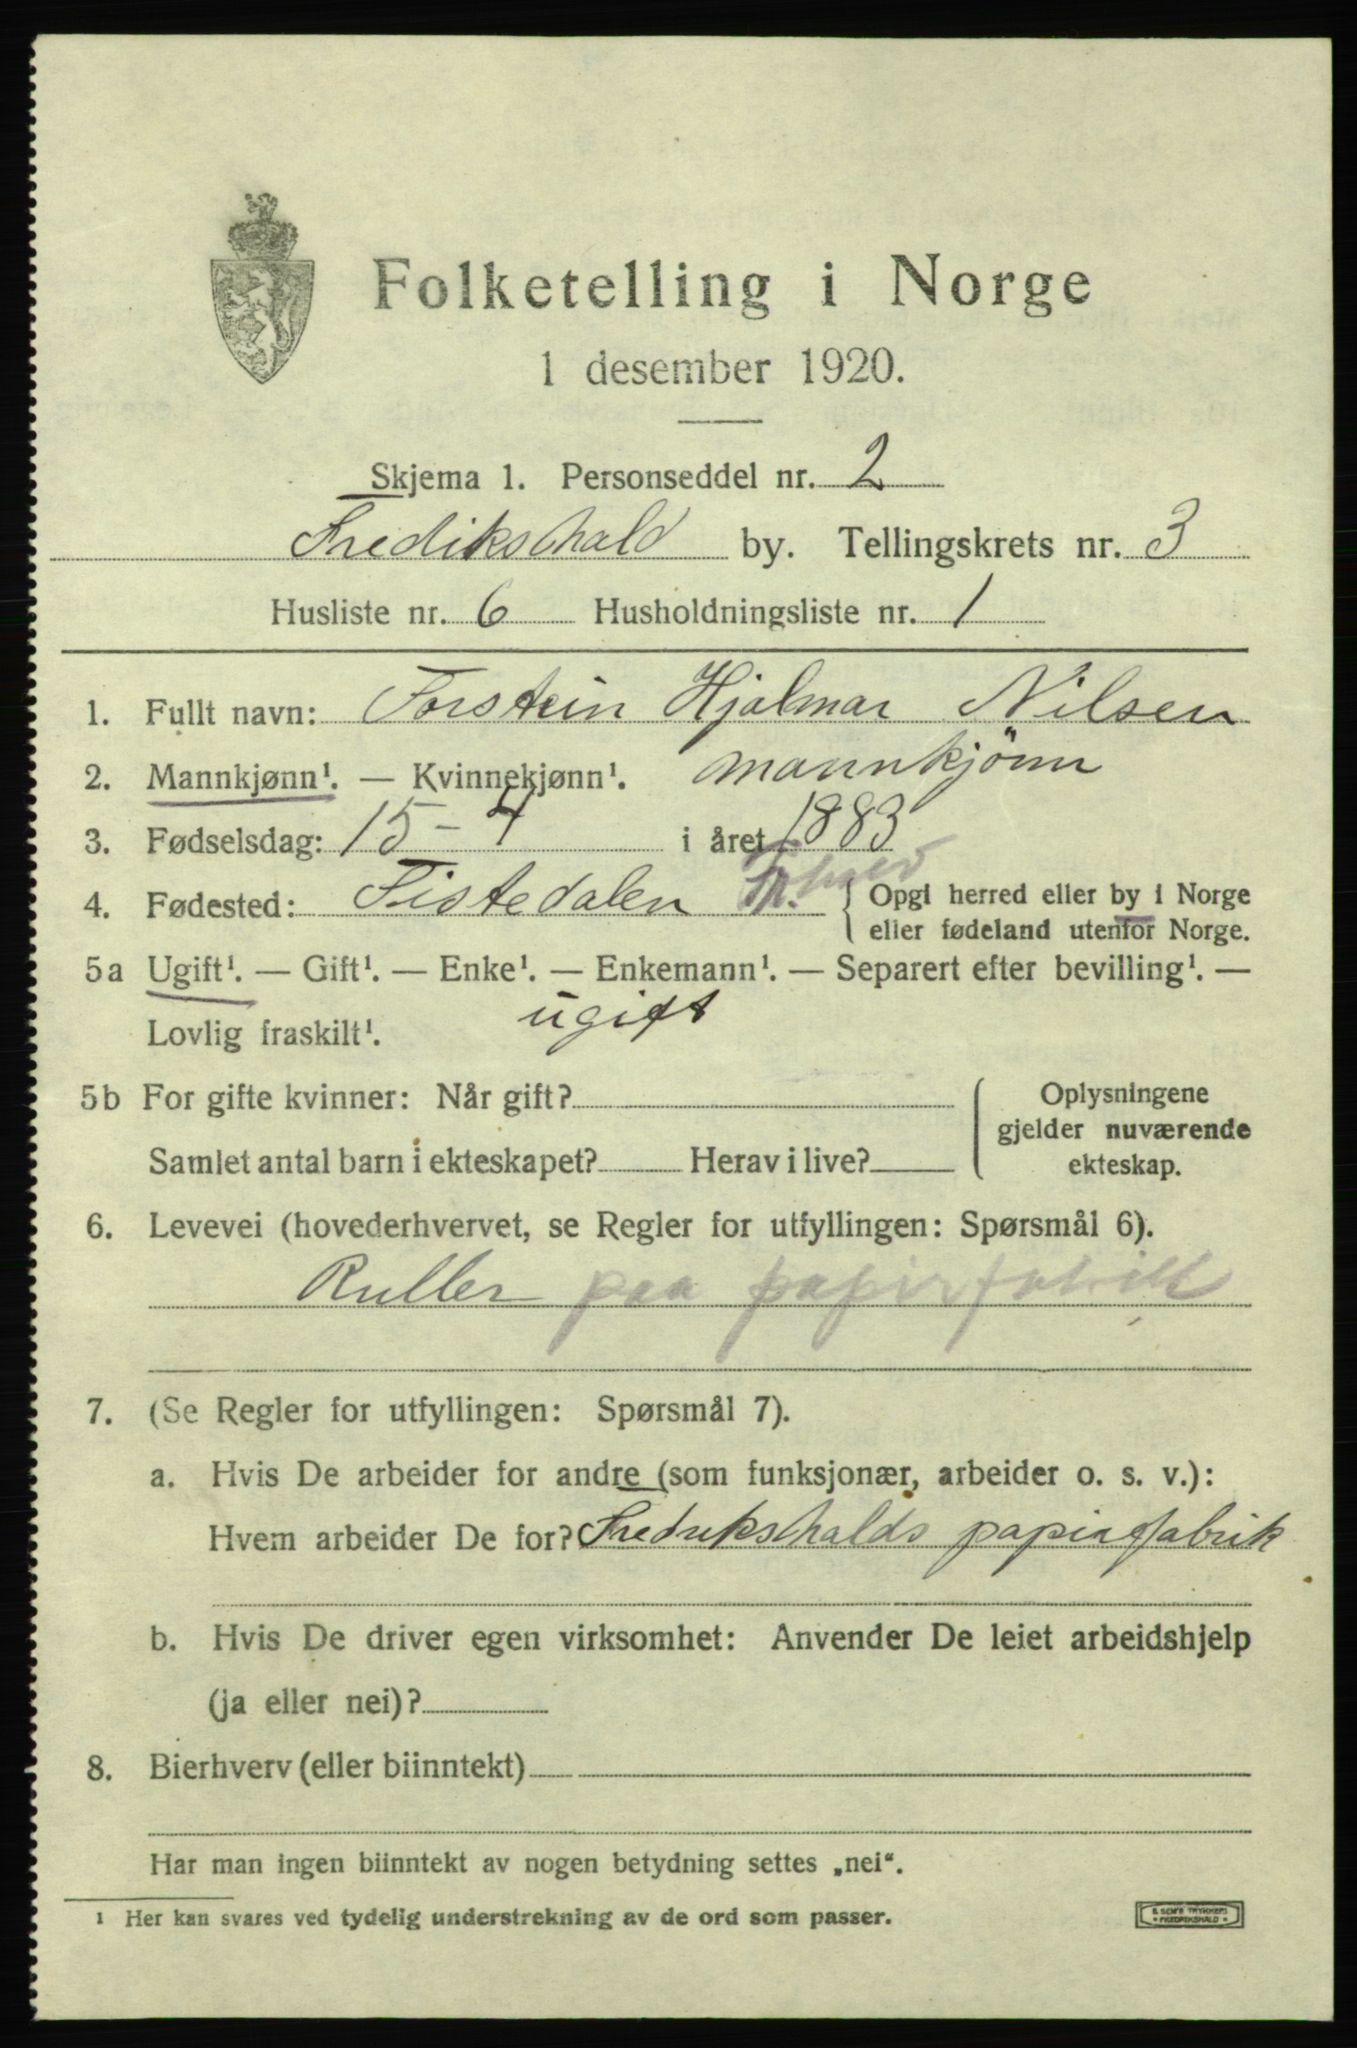 Folketelling i Norge
1 desember 1920.
Skjema 1. Personseddel nr. 2
Fredikshald by. Tellingskrets nr. 3
Husliste nr. 6 Husholdningsliste nr. 1
1. Fullt navn: Torstein Hjalmar Nilsen
2. Mannkjønn¹. — Kvinnekjønn¹. mannkjönn
3. Fødselsdag: 15-4 i året 1883
4. Fødested: Tistedalen Fr.hald { Opgi herred eller by i Norge
eller fødeland utenfor Norge.
5a Ugift¹. — Gift¹. — Enke¹. — Enkemann¹. — Separert efter bevilling¹. —
Lovlig fraskilt¹. ugift
5b For gifte kvinner: Når gift? { Oplysningene
gjelder nuværende
Samlet antal barn i ekteskapet? Herav i live? ekteskap.
6. Levevei (hovederhvervet, se Regler for utfyllingen: Spørsmål 6).
Ruller paa papirfabrik
7. (Se Regler for utfyllingen: Spørsmål 7).
a. Hvis De arbeider for andre (som funksjonær, arbeider o. s. v.):
Hvem arbeider De for? Fredrikshalds papirfabrik
b. Hvis De driver egen virksomhet: Anvender De leiet arbeidshjelp
(ja eller nei)?
8. Bierhverv (eller biinntekt) —
Har man ingen biinntekt av nogen betydning settes „nei“.
¹ Her kan svares ved tydelig understrekning av de ord som passer.
E. SEM'S TRYKKERI
• FREDRIKSHALD •